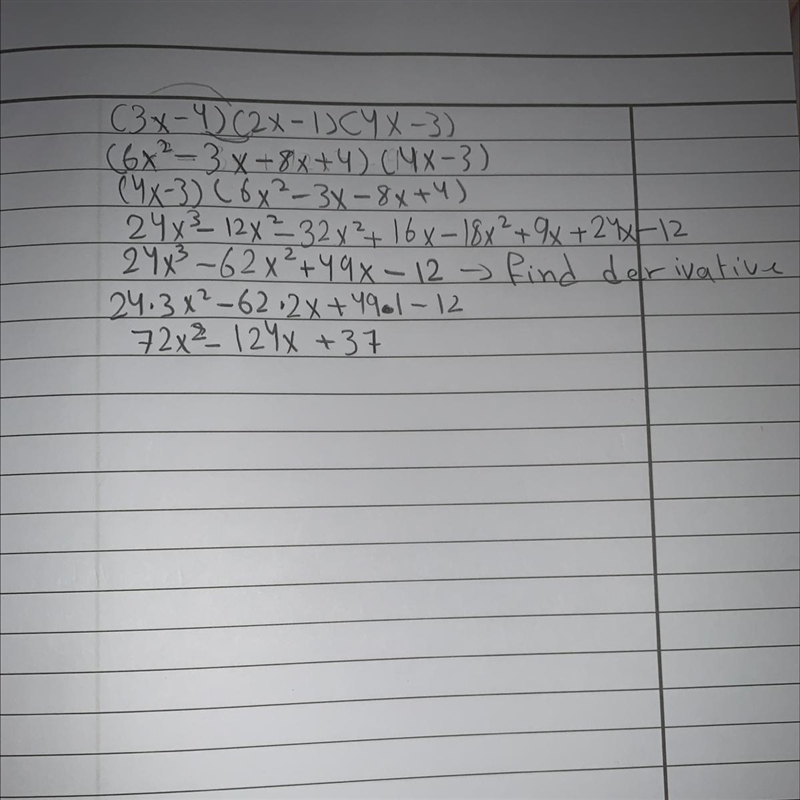 (3x-4)(2x-1)(4x-3)
(6x²-3x+8x+4)(4x-3)
(4x-3)(6x²-3x-8x+4)
24x³-12x²-32x²+16x-18x²+9x+24x-12
24x³-62x²+49x-12→find derivative
24·3x²-62·2x+49·1-12
72x²-124x+37